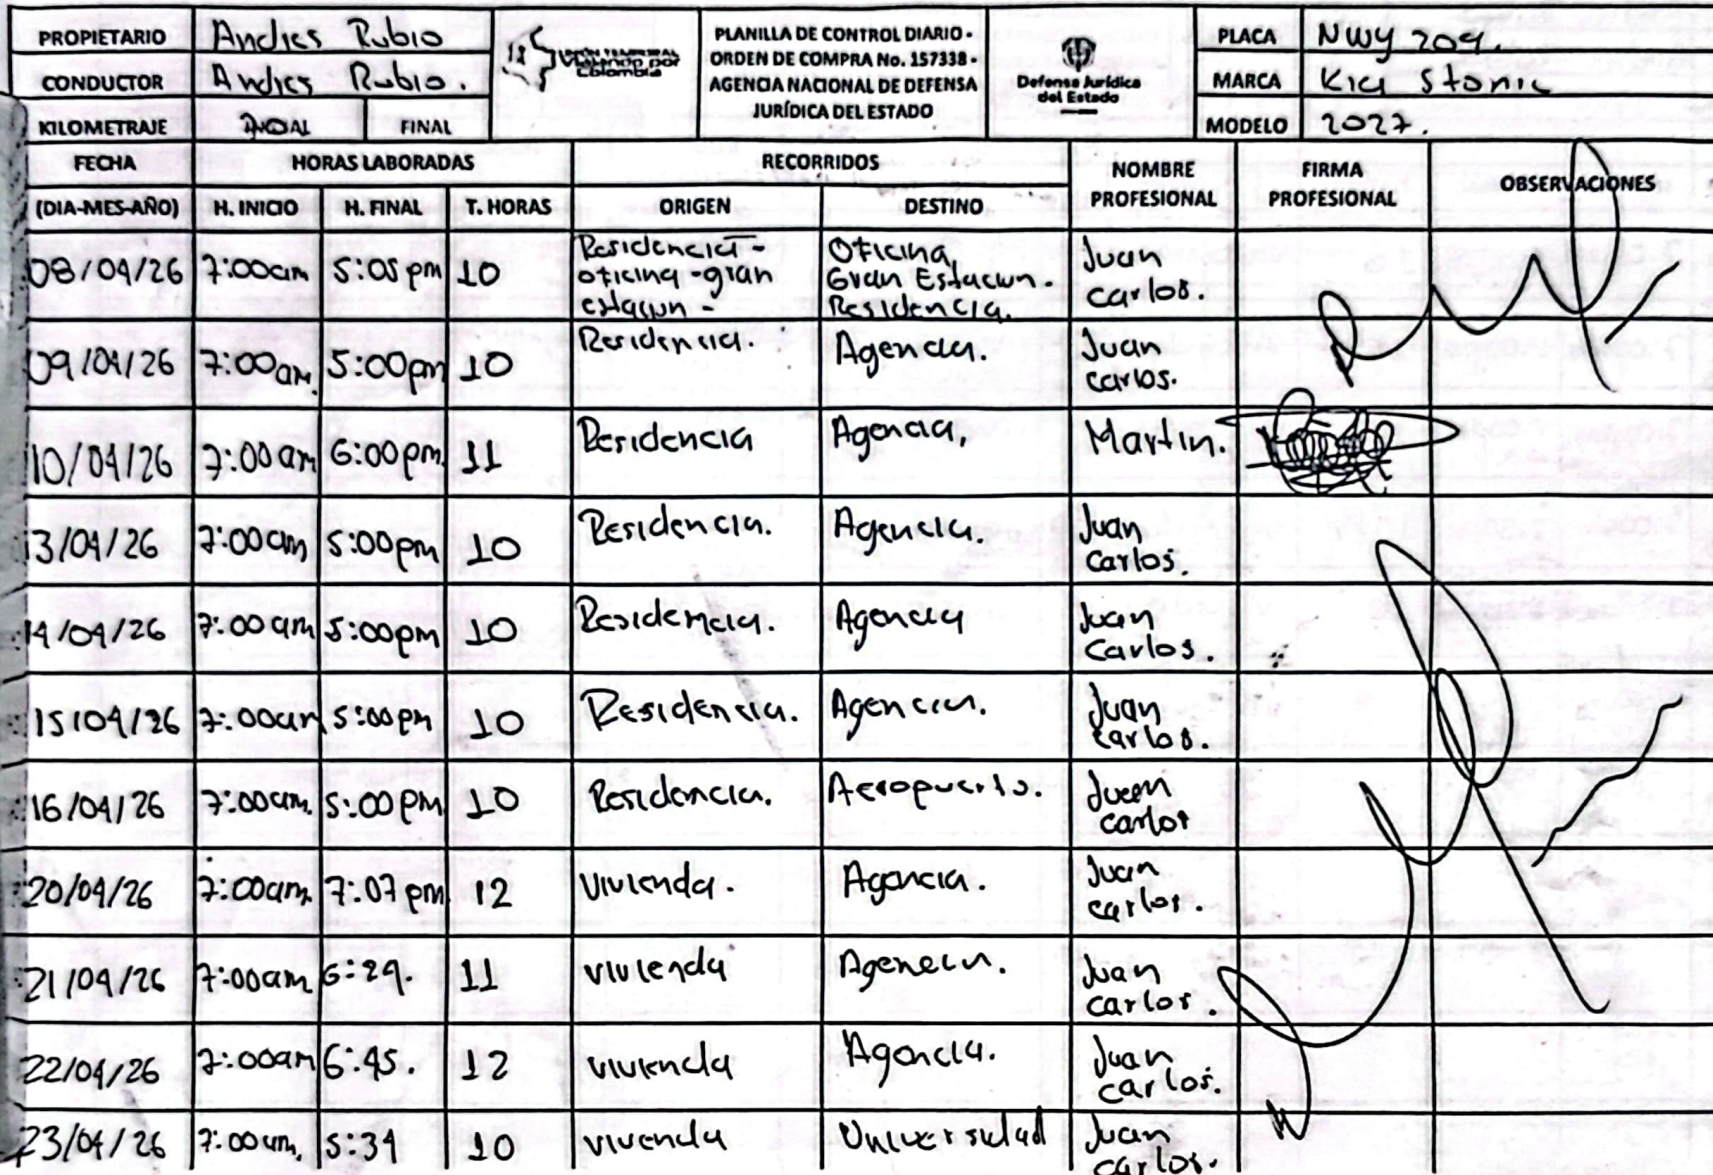 PROPIETARIO Andres Rubio
CONDUCTOR Andres Rubio.
KILOMETRAJE FINAL
UNIÓN TEMPORAL
Viajando por
Colombia
PLANILLA DE CONTROL DIARIO -
ORDEN DE COMPRA No. 157338 -
AGENCIA NACIONAL DE DEFENSA
JURÍDICA DEL ESTADO
Defensa Jurídica
del Estado
PLACA NWY 209.
MARCA Kia Stonic
MODELO 2027.
FECHA HORAS LABORADAS RECORRIDOS NOMBRE PROFESIONAL FIRMA PROFESIONAL OBSERVACIONES
(DIA-MES-AÑO) H. INICIO H. FINAL T. HORAS ORIGEN DESTINO
08/04/26 7:00am 5:05pm 10 Residencia - oficina - gran estacion - Oficina Gran Estacion. Residencia. Juan Carlos.
09/04/26 7:00am 5:00pm 10 Residencia. Agencia. Juan Carlos.
10/04/26 7:00am 6:00pm 11 Residencia Agencia, Martin.
13/04/26 7:00am 5:00pm 10 Residencia. Agencia. Juan Carlos.
14/04/26 7:00am 5:00pm 10 Residencia. Agencia Juan Carlos.
15/04/26 7:00am 5:00pm 10 Residencia. Agencia. Juan Carlos.
16/04/26 7:00am 5:00pm 10 Residencia. Aeropuerto. Juan Carlos
20/04/26 7:00am 7:07pm 12 Vivienda. Agencia. Juan Carlos.
21/04/26 7:00am 6:29. 11 vivienda Agencia. Juan Carlos.
22/04/26 7:00am 6:45. 12 vivienda Agencia. Juan Carlos.
23/04/26 7:00am, 5:34 10 vivienda Universidad Juan Carlos.